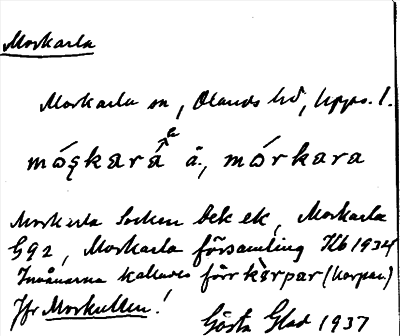 Morkarla
Morkarla sn, Olands hd, Upps. l.
mórkara
Morkarla Socken Jek ek, Morkarla
G92, Morkarla församling Kb 1934
Invånarna kallades förr kòrpar (korpar)
Jfr Morkullen!
Gösta Glad 1937